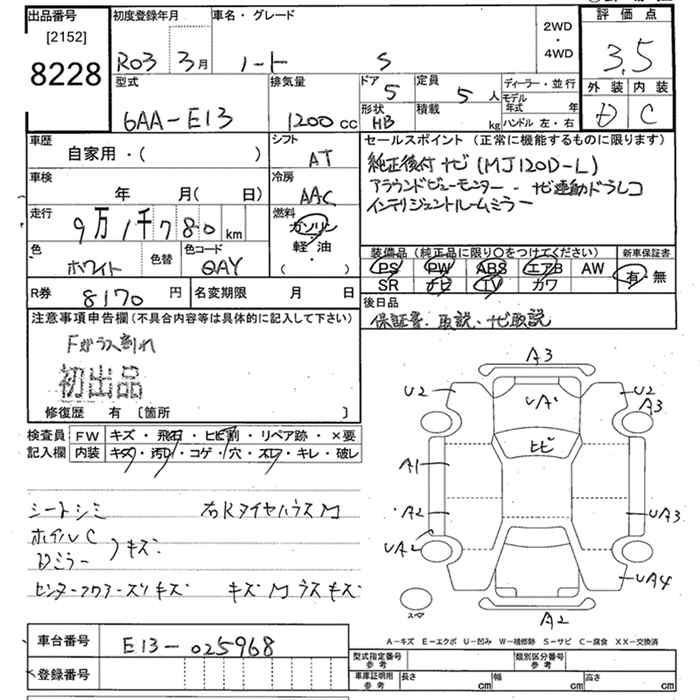 出品番号
[2152]
8228
初度登録年月
R03 3月
車名・グレード
ノート S
2WD
・
4WD
評価点
3.5
外装 内装
D C
型式
6AA-E13
排気量
1200 cc
ドア
5
定員
5 人
形状
HB
積載
kg
ディーラー・並行
モデル年式 年
ハンドル 左・右
車歴
自家用・( )
シフト
AT
車検
年 月( 日)
冷房
AAC
走行
9万1千780 km
燃料
ガソリン
軽・油
( )
色
ホワイト
色替
色コード
QAY
セールスポイント (正常に機能するものに限ります)
純正後付ナビ(MJ120D-L)
アラウンドビューモニター・ナビ連動ドラレコ
インテリジェントルームミラー
装備品(純正品に限り○をつけてください)
PS PW ABS エアB AW
SR ナビ TV カワ
新車保証書
有・無
R券 8170 円
名変期限 月 日
後日品
保証書、取説、ナビ取説
注意事項申告欄(不具合内容等は具体的に記入して下さい)
Fガラス割れ
初出品
修復歴 有 〔箇所 〕
検査員
記入欄
FW キズ・飛石・ヒビ割・リペア跡・×要
内装 キズ・汚レ・コゲ・穴・スレ・キレ・破レ
シートシミ 右RタイヤハウスM
ホイルC
Dミラー キズ
キズ
A3
U2
U2
A3
UA
ヒビ
A1
A2
UA2
UA3
UA4
スペア
A2
A-キズ E-エクボ U-凹み W-補修跡 S-サビ C-腐食 XX-交換済
車台番号
E13-025968
登録番号
型式指定番号
参考
類別区分番号
参考
車庫証明用
参考
長さ cm
幅 cm
高さ cm